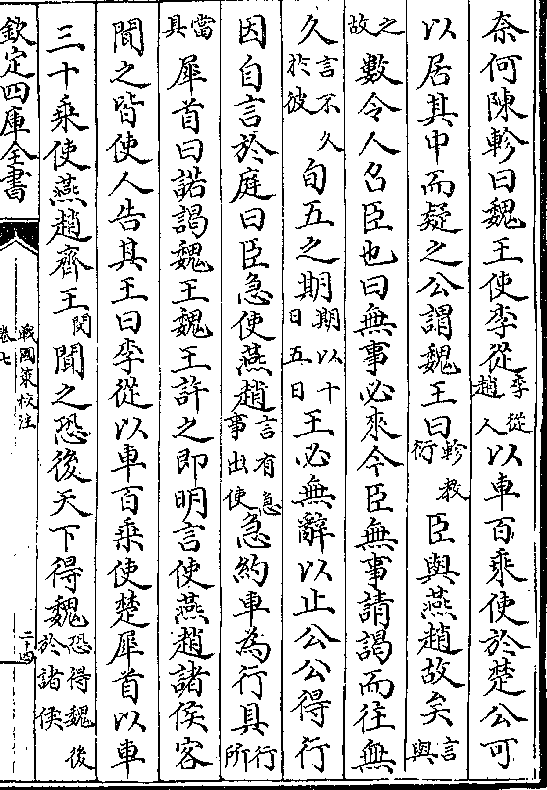 奈何陳軫曰魏王使李從李從趙人以車百乘使於楚公可
以居其中而疑之公謂魏王曰軫教衍臣與燕趙故矣言與
之故數令人召臣也曰無事必來今臣無事請謁而往無
久言不久於彼旬五之期期以十日五日王必無辭以止公公得行
因自言於庭曰臣急使燕趙言有急事出使急約車為行具行所
當具犀首曰諾謁魏王魏王許之即明言使燕趙諸侯客
聞之皆使人告其王曰李從以車百乘使楚犀首以車
三十乘使燕趙齊王閔聞之恐後天下得魏恐得魏後於諸侯
欽定四庫全書
戰國策校注
卷七
二十四